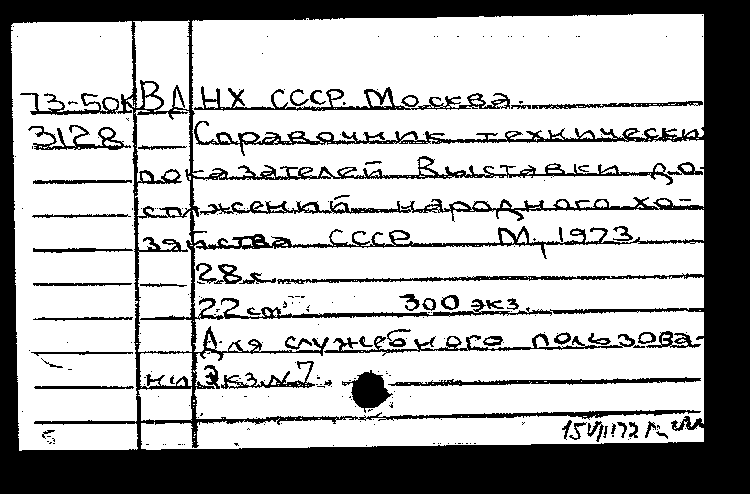 73-50К ВДНХ СССР. Москва.
3128 Справочник технически
показателей Выставки до-
стижений народного хо-
зяйства СССР М, 1973.
28 с
22 cm 300 экз.
Для служебного пользова-
ни Экз. № 7.